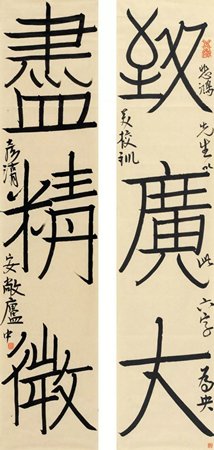 致廣大
悲鴻先生以此六字為央
美校訓
盡精微
彥清
安敞廬中